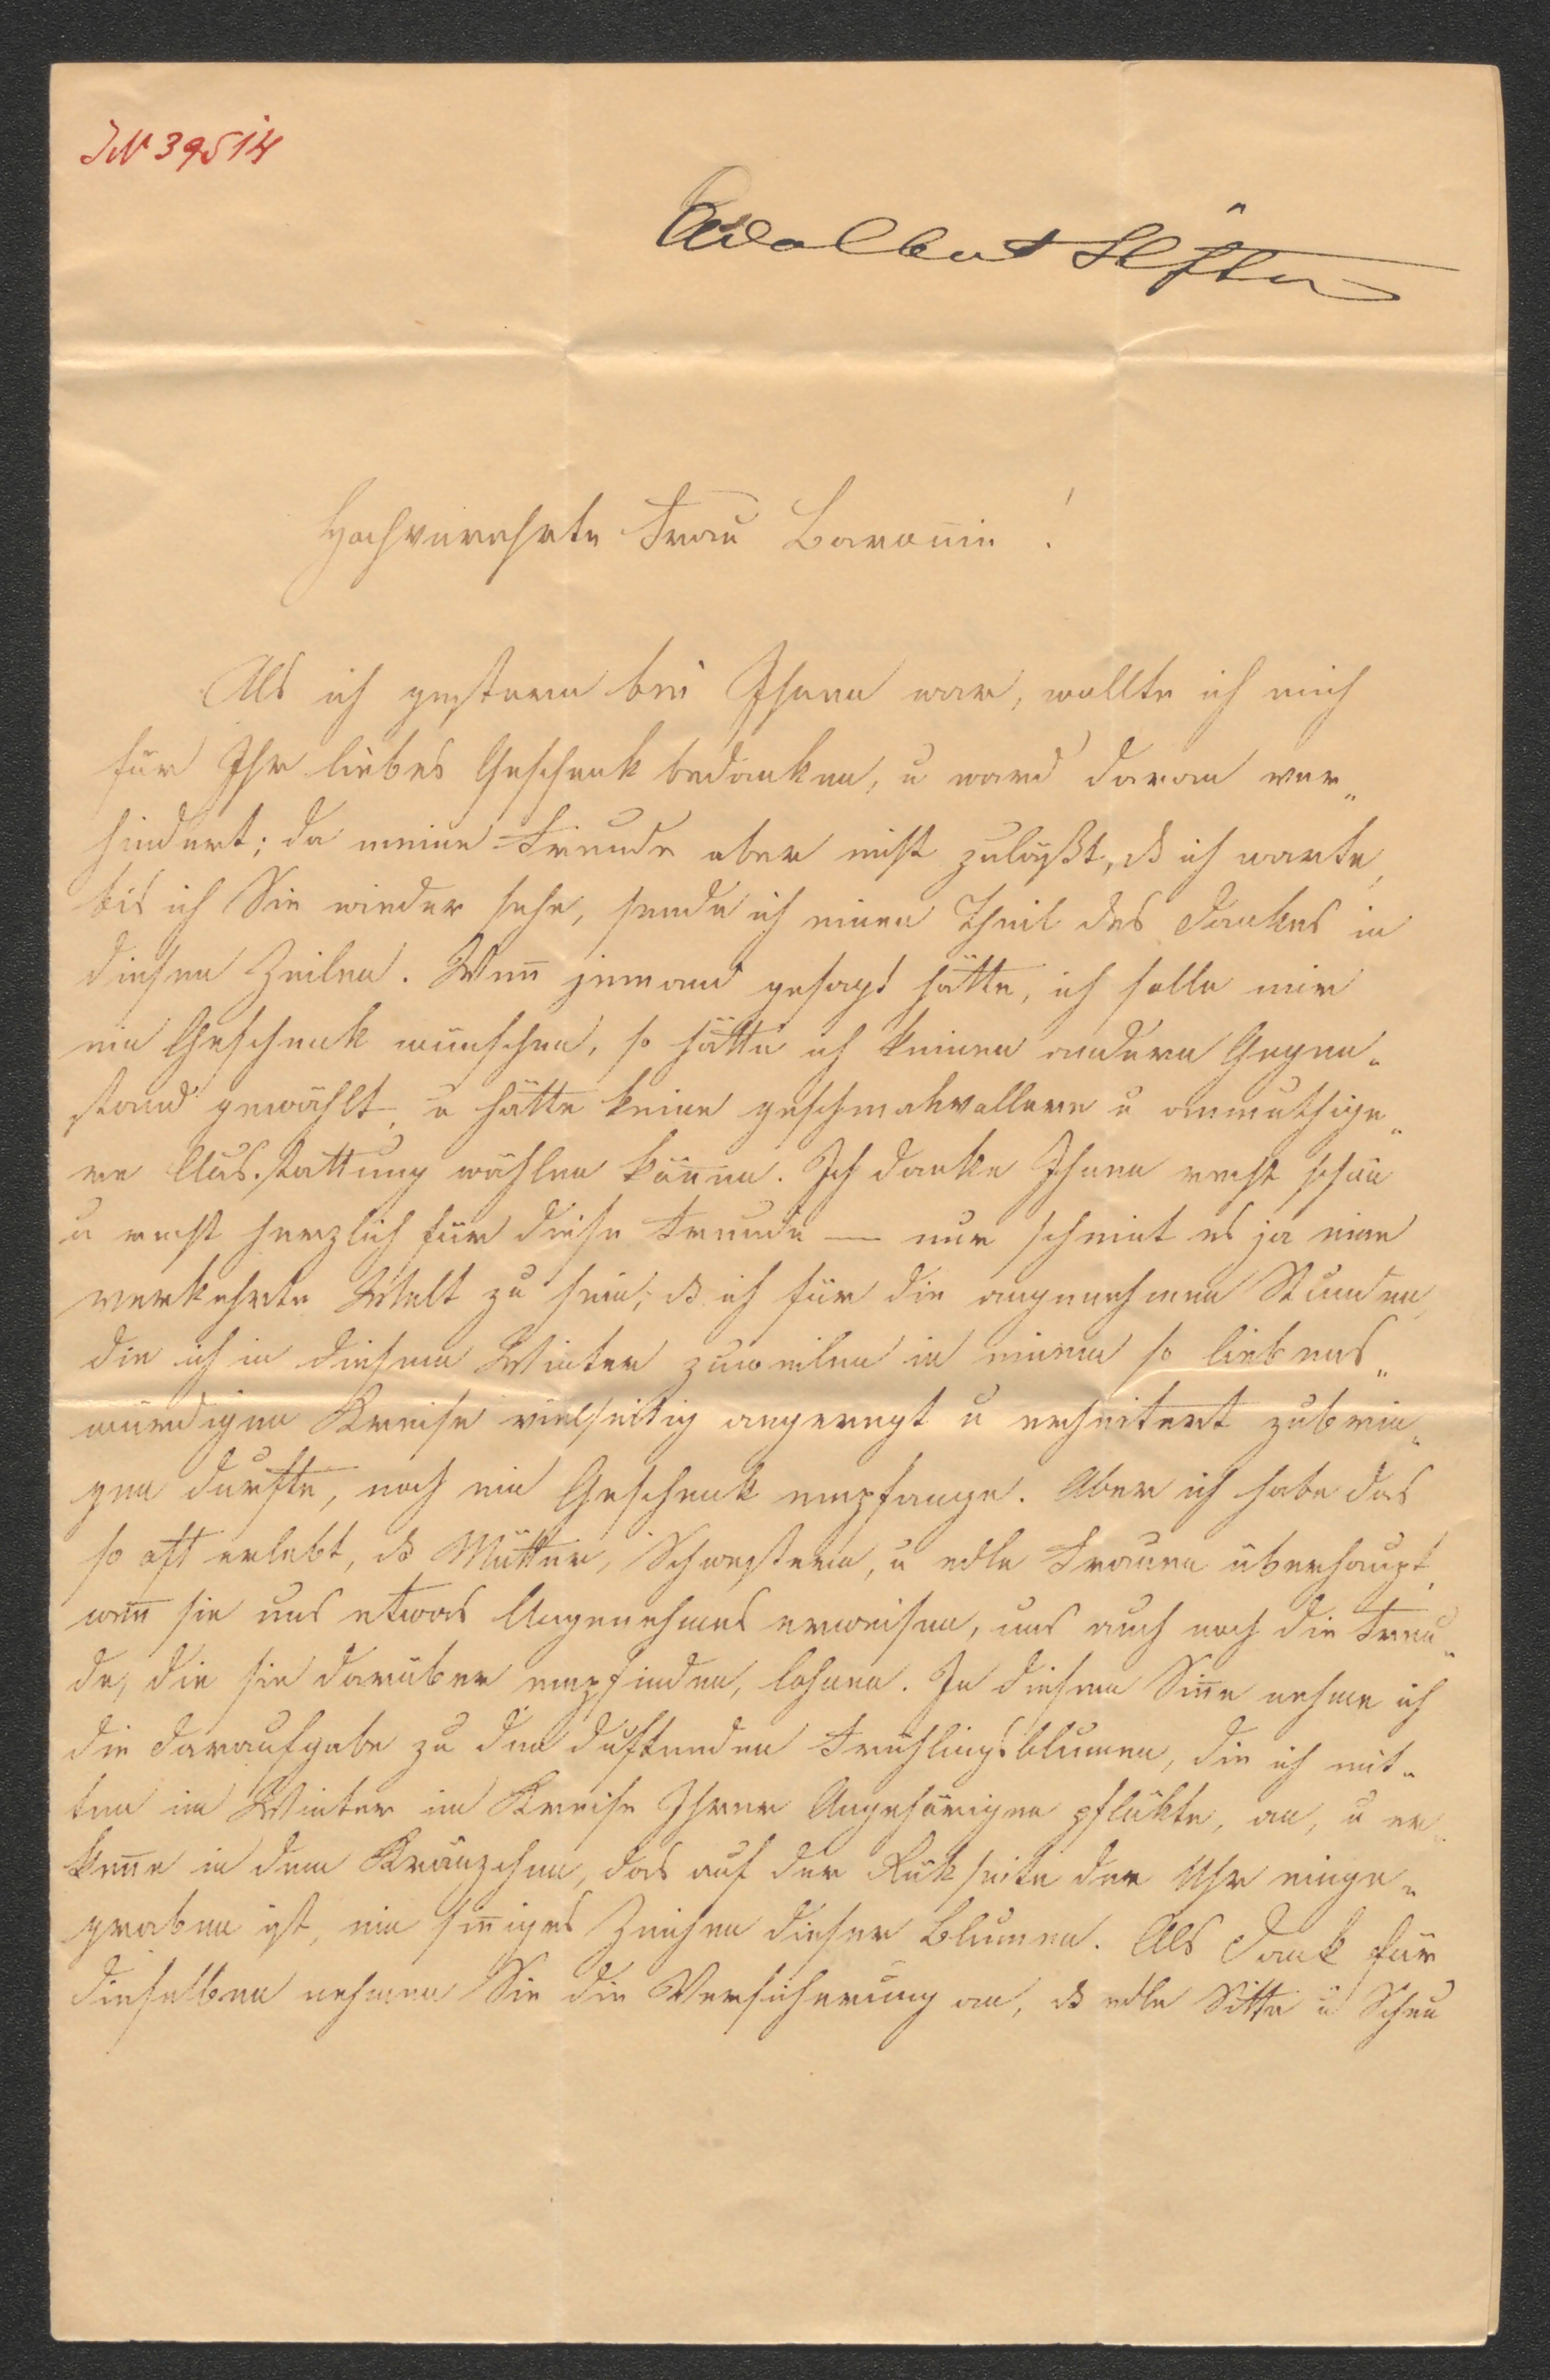 IN 39514
Adalbert Stifter
Hochverehrte Frau Baronin!
Als ich gestern bei Ihnen war, wollte ich mich
für Ihr liebes Geschenk bedanken, u ward daran ver„
hindert; da meine Freude aber nicht zuläßt, dß ich warte,
bis ich Sie wieder sehe, sende ich einen Theil des Dankes in
diesen Zeilen. Weñ jemand gesagt hätte, ich solle mir
ein Geschenk wünschen, so hätte ich keinen andern Gegen„
stand gewählt, u hätte keine geschmakvollere u anmuthige„
re Ausstattung wählen köñen. Ich danke Ihnen recht schön
u recht herzlich für diese Freude — nur scheint es ja eine
verkehrte Welt zu sein, dß ich für die angenehmen Stunden,
die ich in diesem Winter zuweilen in einem so liebens„
würdigen Kreise vielseitig angeregt u erheitert zubrin„
gen durfte, noch ein Geschenk empfange. Aber ich habe das
so oft erlebt, dß Mütter, Schwestern, u edle Frauen überhaupt,
weñ sie uns etwas Angenehmes erweisen, uns auch noch die Freu„
de, die sie darüber empfinden, lohnen. In diesem Siñe nehme ich
die Daraufgabe zu den duftenden Frühlingsblumen, die ich mit„
ten im Winter im Kreise Ihrer Angehörigen pflükte, an, u er„
keñe in dem Kränzchen, das auf der Rükseite der Uhr einge„
graben ist, ein siñiges Zeichen dieser Blumen. Als Dank für
dieselben nehmen Sie die Versicherung an, dß edle Sitte u Scheu